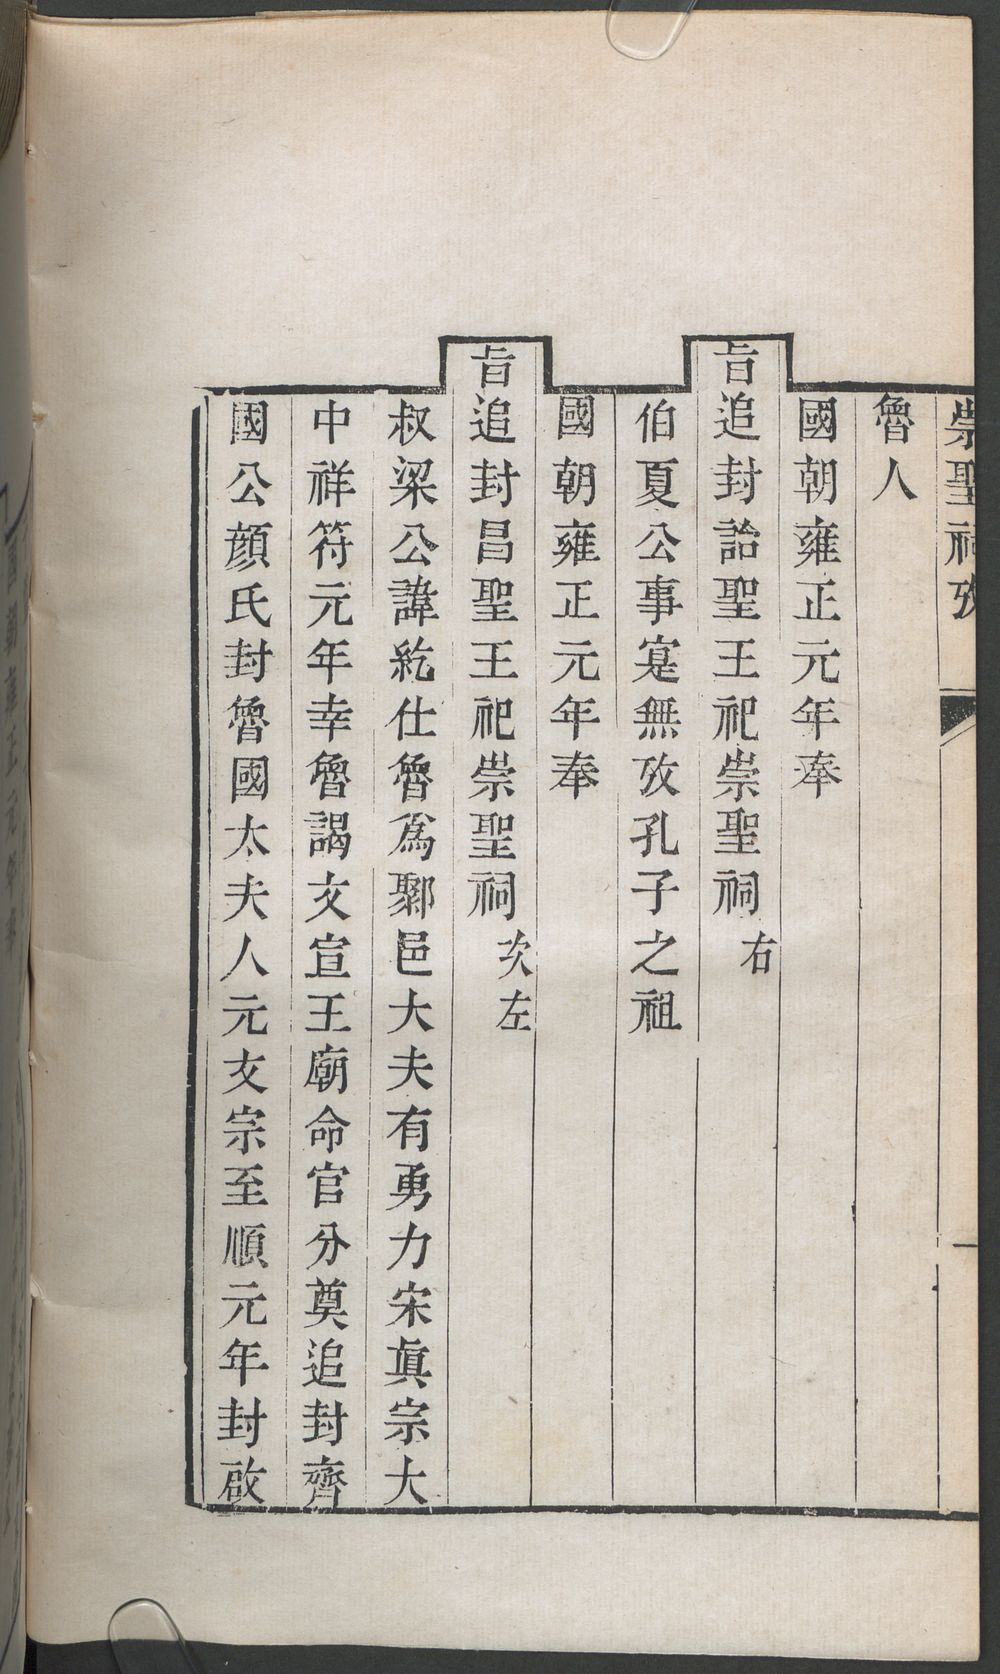 崇聖祠攷
一
魯人
國朝雍正元年奉
旨追封詒聖王祀崇聖祠右
伯夏公事寔無攷孔子之祖
國朝雍正元年奉
旨追封昌聖王祀崇聖祠次左
叔梁公諱紇仕魯爲郰邑大夫有勇力宋眞宗大
中祥符元年幸魯謁文宣王廟命官分奠追封齊
國公顏氏封魯國太夫人元文宗至順元年封啟